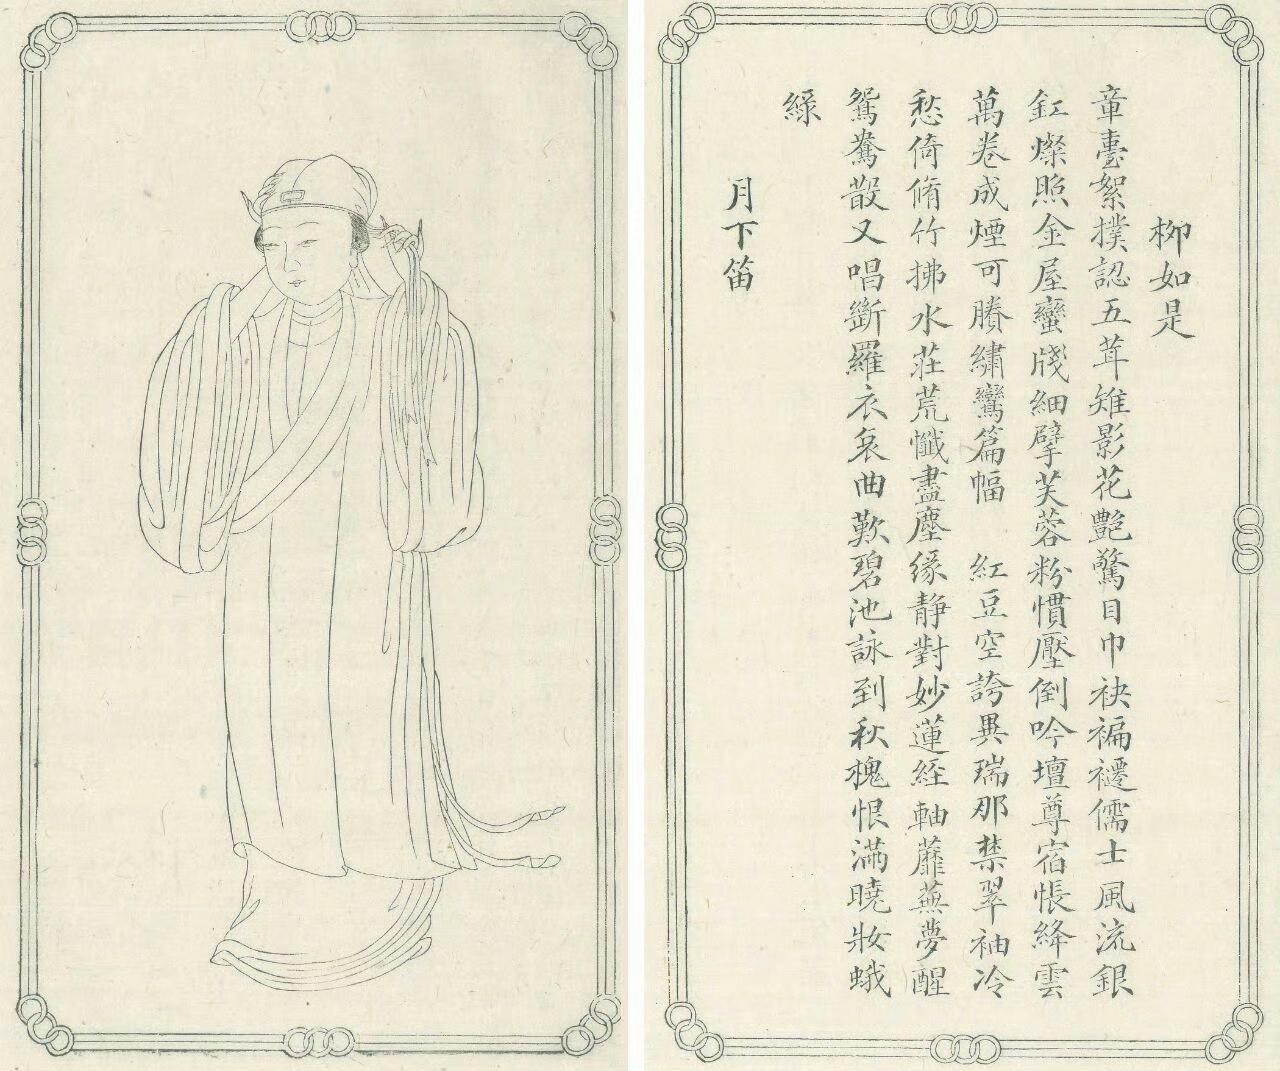 柳如是
章臺絮撲認五茸雉影花艷驚目巾袂褊襹儒士風流銀
釭燦照金屋蠻牋細擘芙蓉粉慣壓倒吟壇尊宿悵絳雲
萬卷成煙可賸繡鸞篇幅　紅豆空誇異瑞那禁翠袖冷
愁倚脩竹拂水莊荒懺盡塵緣靜對妙蓮經軸蘼蕪夢醒
鴛鴦散又唱斷羅衣哀曲歎碧池詠到秋槐恨滿曉妝蛾
綠
月下笛